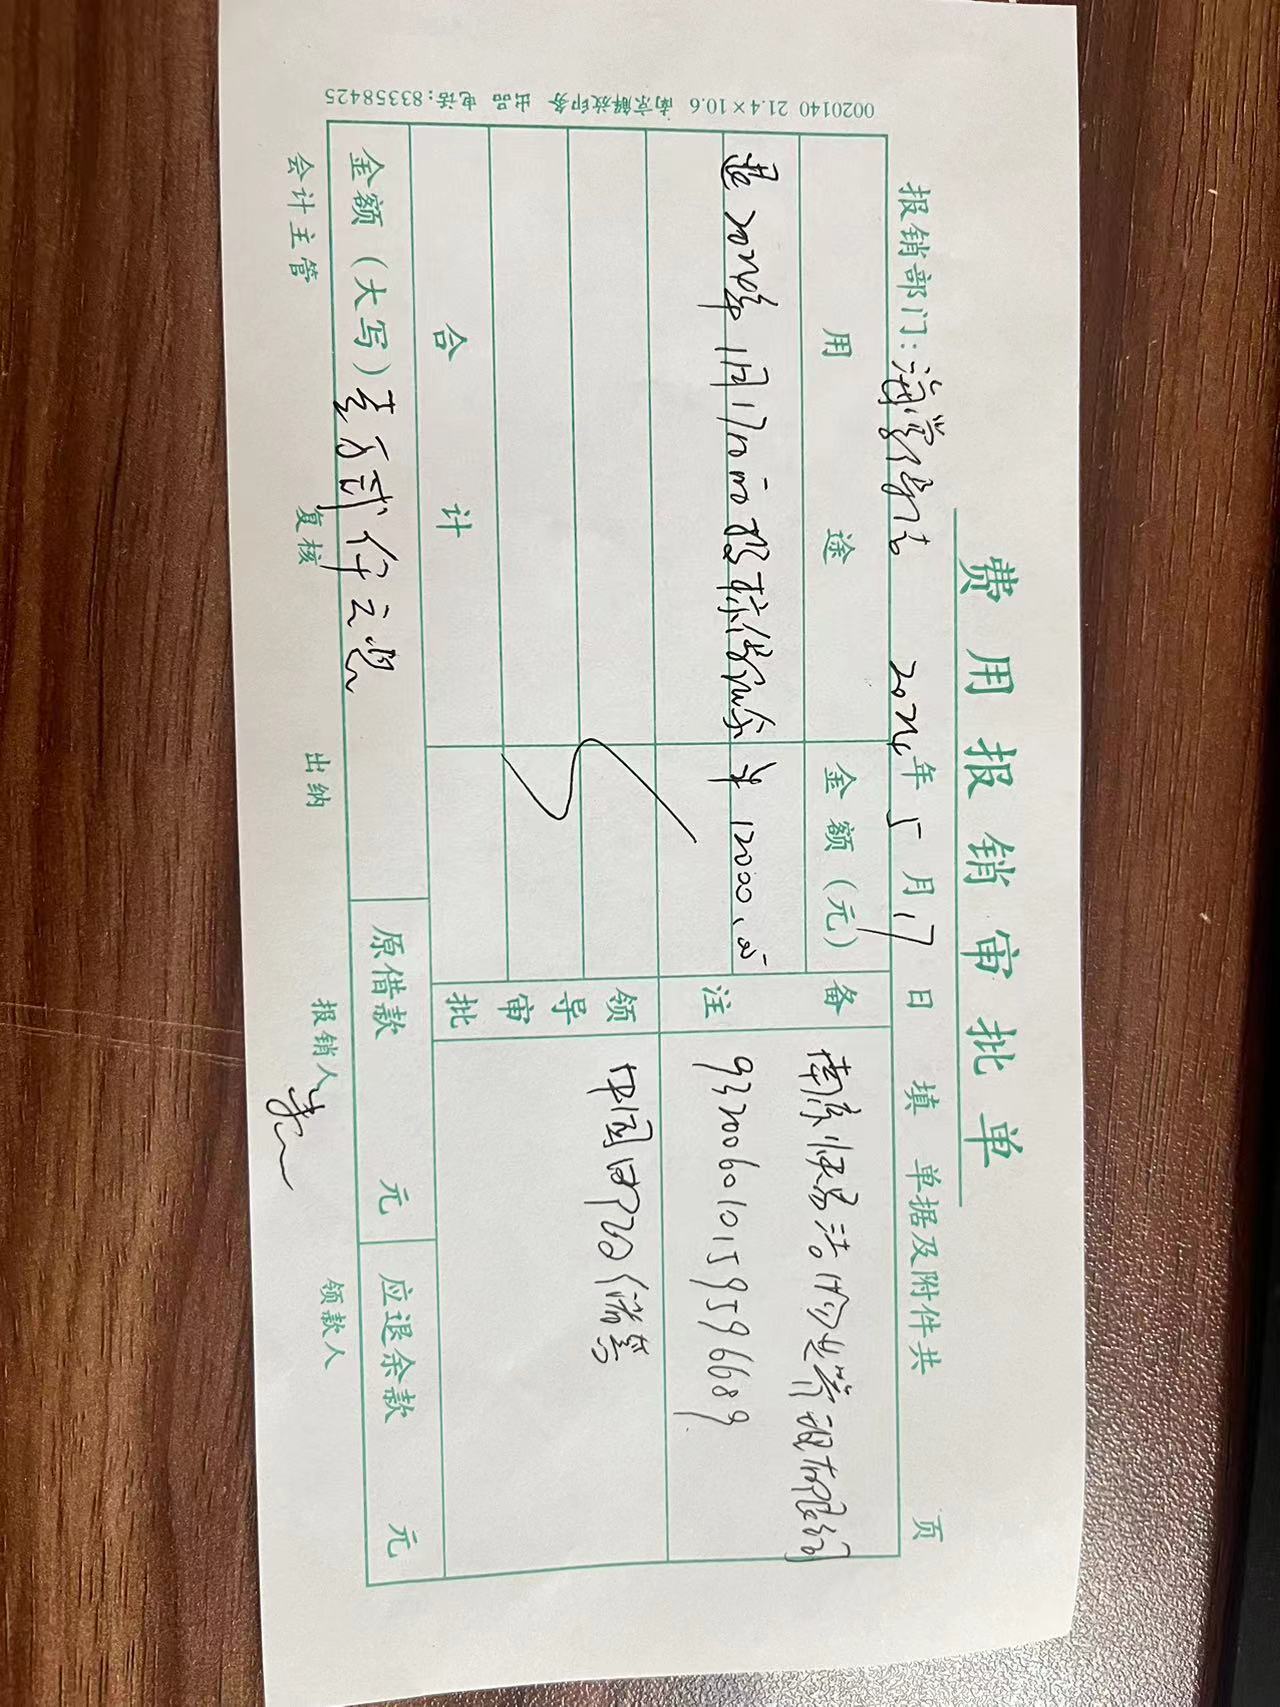 费用报销审批单
报销部门: 2024年5月17日 填 单据及附件共 页
用途 金额(元) 备注
退2024年1月17日投标保证金 ¥12000.00 南京 物业管理有限公司
932006010159596689
中国邮政储蓄
合计 领导审批
金额(大写)壹万贰仟元整 原借款 元 应退余款 元
会计主管 复核 出纳 报销人 领款人
0020140 21.4×10.6 南京解放印务 出品 电话:83358425